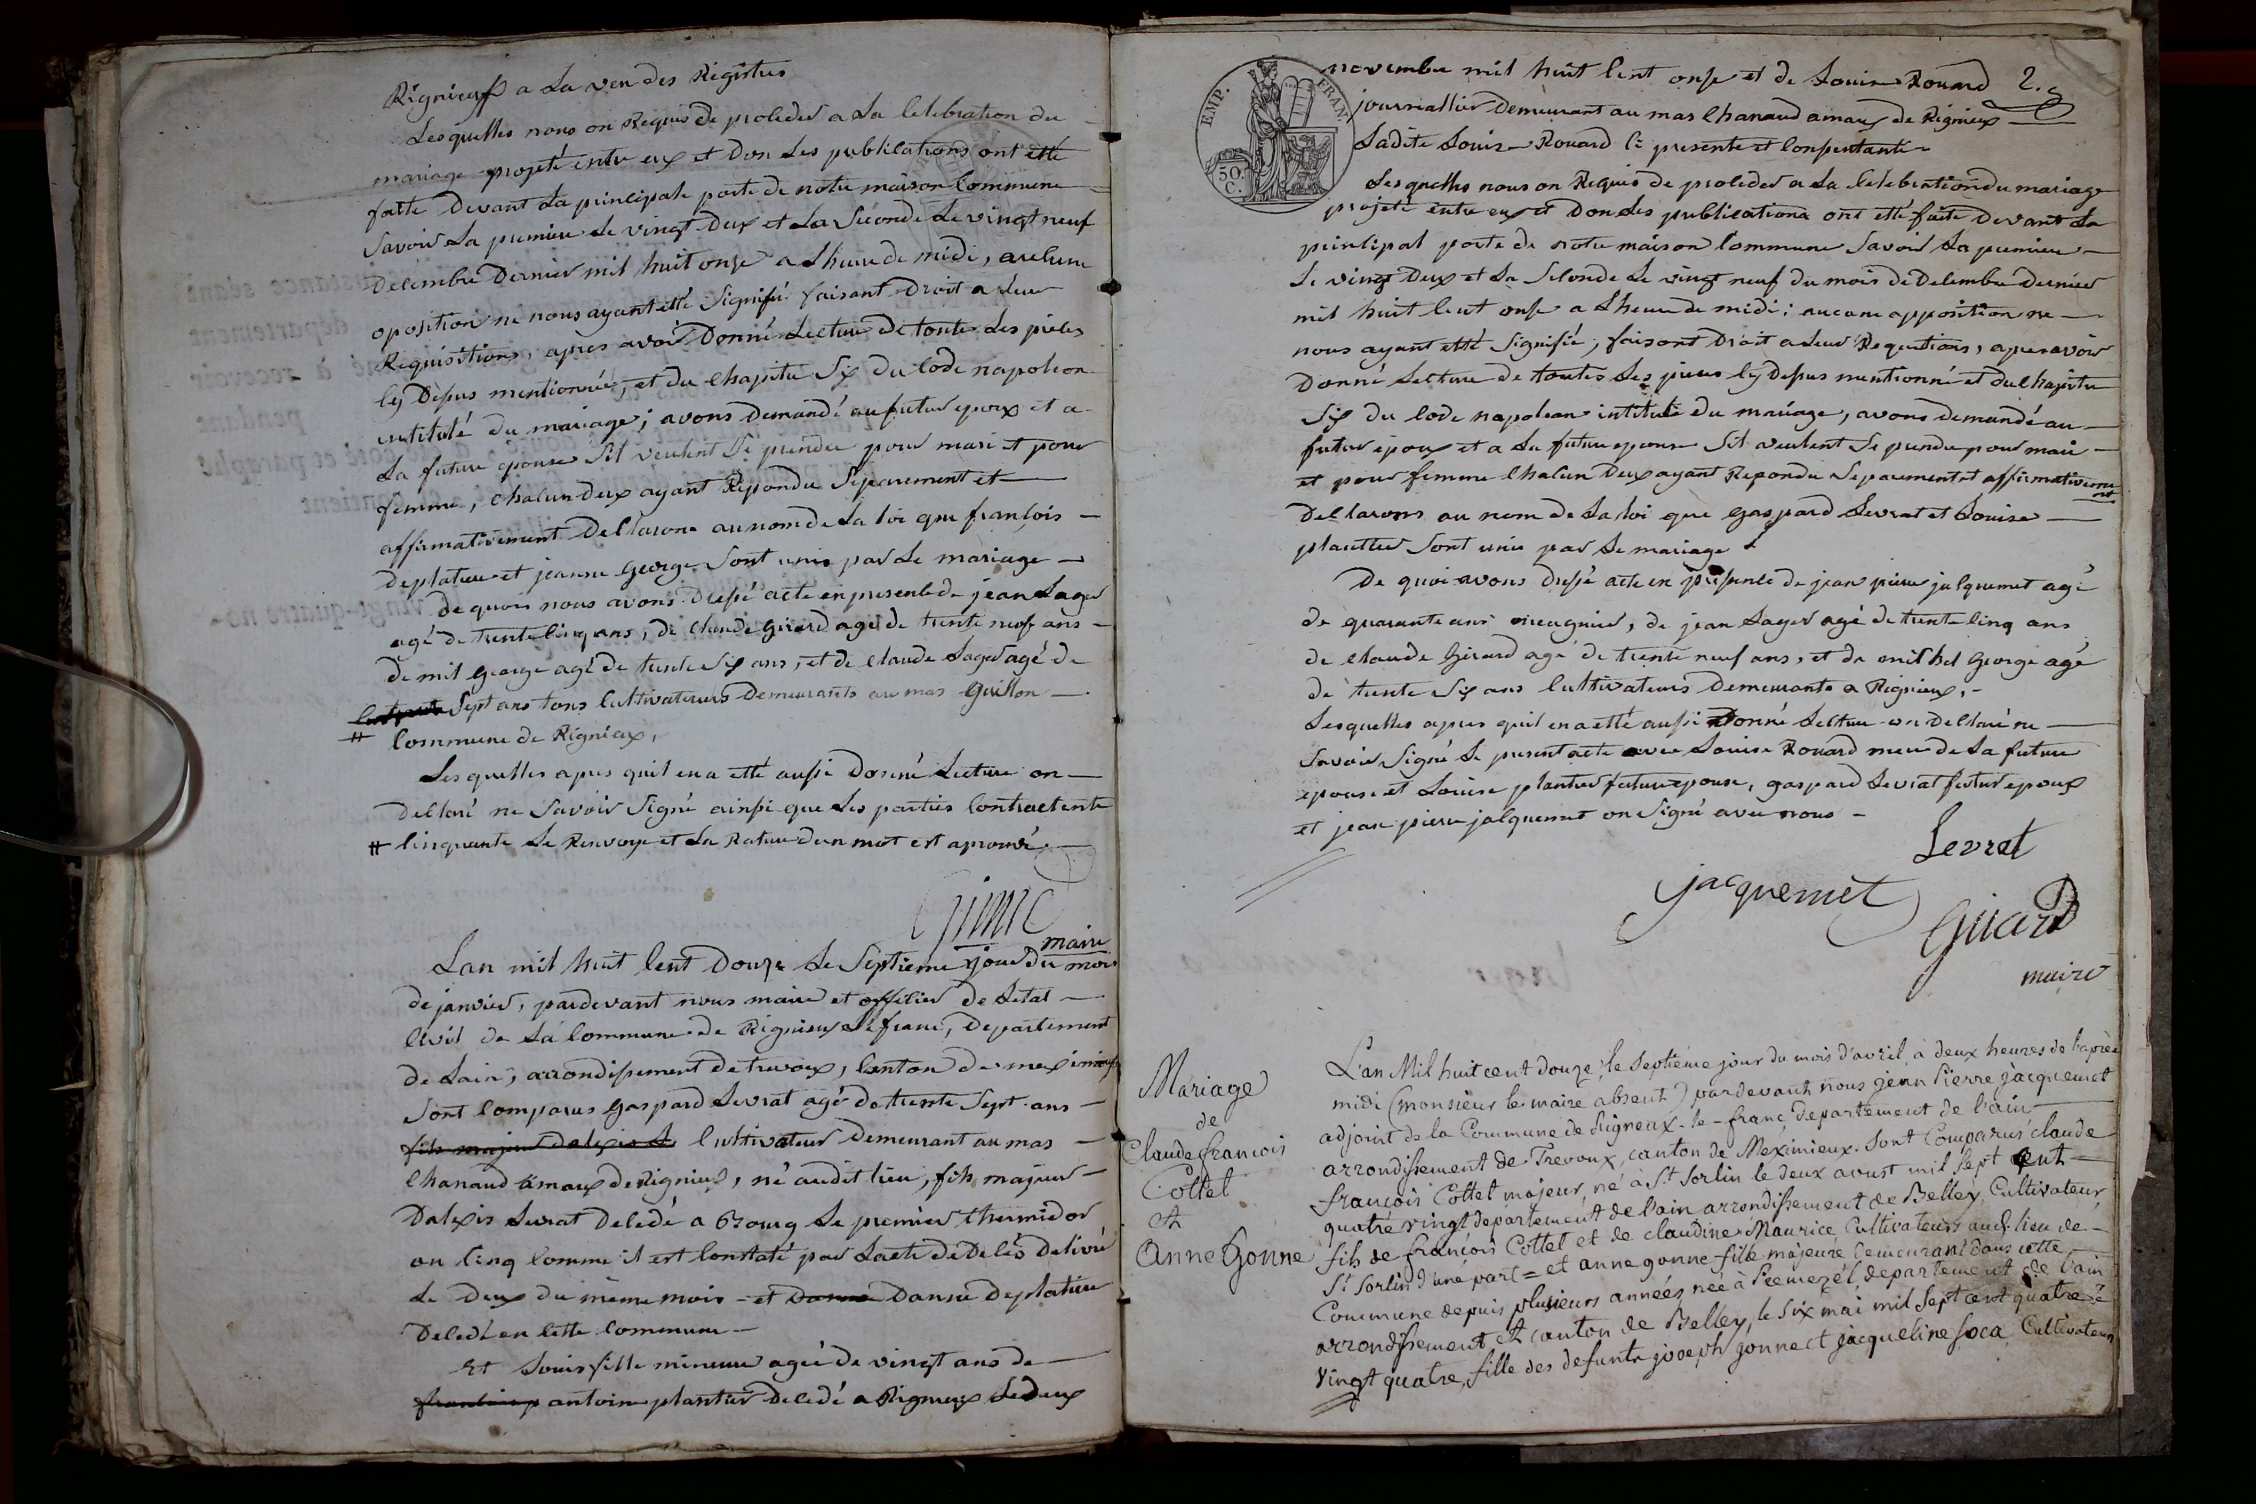 Rignieux a La veu des Registres
Lesquelles nous on Requis de proceder a La Celebration du
mariage projeté entre eux et Don Les publications ont etté
faite Devant La principale porte de notre maison Commune
Savoir La premiere Le vingt Deux et La Seconde Le vingt neuf
Decembre Dernier mil huit onze a Lheure de midi, aucune
oposition ne nous ayant etté Signifié faisant Droit a Leur
Requisitions, apres avoir Donné Lecture de toute Les pieces
Cy Dessus mentionnée, et du Chapitre Six du Code napoleon
intitulé du mariage; avons Demandé au futur epoux et a
La future epouse Sil veulent Se prendre pour mari et pour
femme, Chacun Deux ayant Repondu Separement et
affirmativement Declarons au nom de La loi que francois
Deplature et jeanne George Sont unis par Le mariage
de quoi nous avons Dressé acte en presence de jean Lager
agé De trente Cinq ans, De Claude Girard agé de trente neuf ans
De mil George agé de trente Six ans, et de Claude Lager agé de
# Sept ans tous Cultivateurs Demeurants au mas Guillon
Commune de Rignieux,
Lesquelles apres quil en a etté aussi Donné Lecture on
Declaré ne Savoir Signé ainsi que Les parties Contractente
# Cinquante Le Renvoye et La Rature dun mot est aprouvé.
maire
Lan mil huit Cent Douze Le Septieme jour Du mois
de janvier, pardevant nous maire et officier De Letat
Civil de La Commune de Rignieux Le franc, Departement
De Lain, arrondissement De trevoux, Canton de meximieux
Sont Comparus Gaspard Levrat agé De trente Sept ans
fils majeur dalexis L Cultivateur Demeurant au mas
Chanaud amaux de Rignieux, né audit lieu, fils majeur
Dalexis Levrat Decedé a Bourg Le premier thermidor
an Cinq Comme il est Constaté par Lacte de Decés Delivré
Le Deux du même mois et Danne Deplature
Decedé en Cette Commune
Et Louise fille mineure agée de vingt ans de
antoine plantier Decedé a Rignieux Le deux
2.e
EMP. FRAN.
50. C.
novembre mil huit Cent onze et de Louise Rouard
journallier Demeurant au mas Chanaud amaux de Rignieux
Ladite Louise Rouard Ci presente et Consentante
Lesquelles nous on Requis de proceder a La Celebration du mariage
projeté entre eux et Don Les publications ont etté faite Devant La
principal porte de notre maison Commune Savoir La premiere
Le vingt Deux et La Seconde Le vingt neuf du mois de Decembre Dernier
mil huit Cent onze a Lheure de midi; aucune opposition ne
nous ayant etté Signifié, faisant Droit a Leur Requetions, apres avoir
Donné Lecture de toutes Les pieces Cy Dessus mentionné et du Chapitre
Six du Code napoleon intitulé Du mariage, avons demandé au
futur époux et a La future epouse Sil veulent Se prendre pour mari
et pour femme Chacun Deux ayant Repondu Separement et affirmativement
Declarons au nom de La loi que Gaspard Levrat et Louise
plantier Sont unis par Le mariage
De quoi avons Dressé acte en presence de jean pierre jacquemet agé
de quarante ans, de jean Lager agé de trente Cinq ans
de Claude Girard agé de trente neuf ans, et de michel George agé
de trente Six ans Cultivateurs Demeurants a Rignieux,
Lesquelles apres quil en a etté aussi Donné Lecture on Declaré ne
Savoir Signé Le present acte avec Louise Rouard mere de La future
epouse et Louise plantier future epouse, gaspard Levrat futur epoux
et jean pierre jacquemet on Signé avec nous
Levrat
jacquemet
Girard
maire
Mariage
de
Claude francois
Cottet
et
Anne Gonne
L'an Mil huit cent douze, le septième jour du mois d'avril, à deux heures de l'après
midi (monsieur le maire absent) pardevant nous jean Pierre jacquemet
adjoint de la Commune de Rigneux-le-franc, departement de l'ain
arrondissement de Trevoux, canton de Meximieux. Sont Comparus claude
françois Cottet majeur, né à St Sorlin le deux avust mil Sept cent
quatre vingt departement de l'ain arrondissement de Belley, Cultivateur
fils de françois Cottet et de claudine Maurice Cultivateurs aud. lieu de
St Sorlin d'une part = et anne gonne fille majeure demeurant dans cette
Commune depuis plusieurs années née à Peemezel, departement de l'ain
arrondissement et canton de Belley, le six mai mil Sept cent quatre
Vingt quatre, fille des defunts joseph gonne et jacqueline Soca Cultivateurs